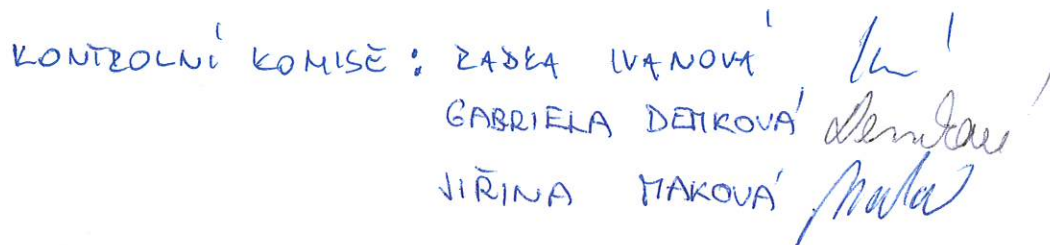 KONTROLNÍ KOMISE : RADKA IVANOVÁ
GABRIELA DEMKOVÁ Demková
JIŘINA MAKOVÁ